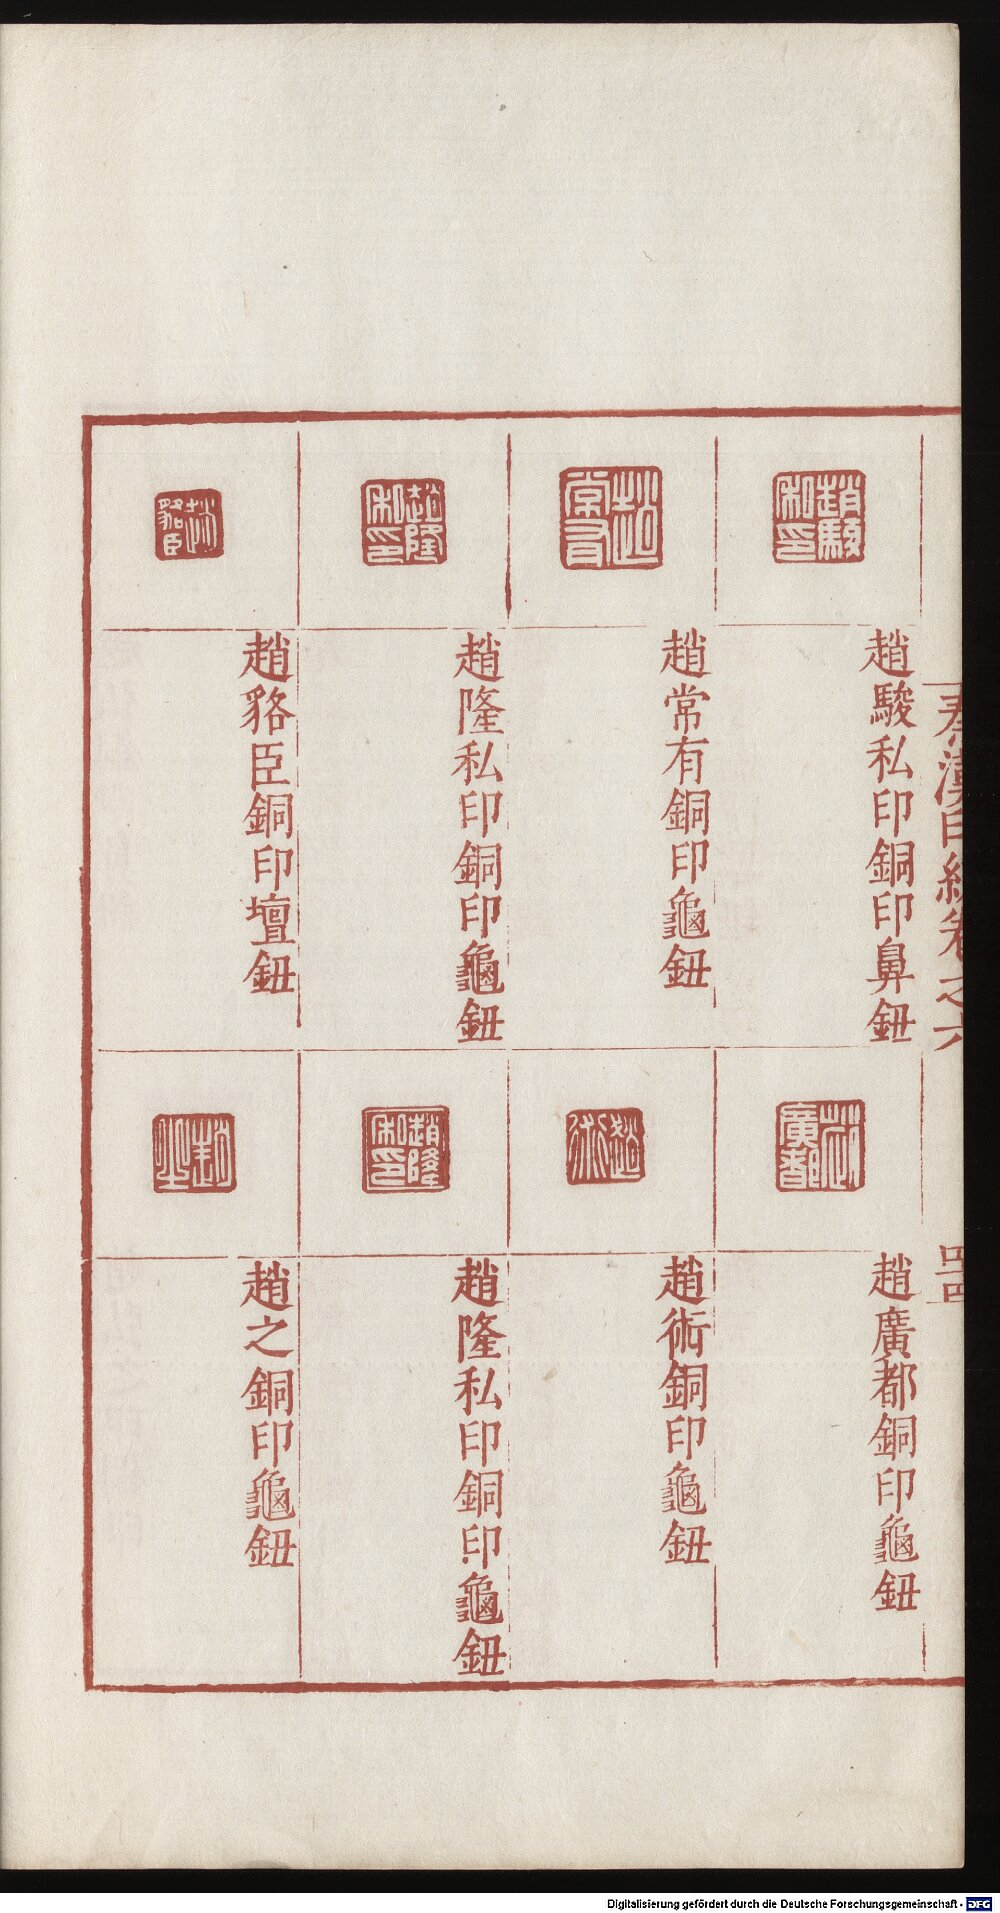 秦漢印統卷之六
四
趙駿私印銅印鼻鈕
趙常有銅印龜鈕
趙隆私印銅印龜鈕
趙貉臣銅印壇鈕
趙廣都銅印龜鈕
趙術銅印龜鈕
趙隆私印銅印龜鈕
趙之銅印龜鈕
趙駿私印
趙常有
趙隆私印
趙貉臣
趙廣都
趙術
趙隆私印
趙之
Digitalisierung gefördert durch die Deutsche Forschungsgemeinschaft - DFG